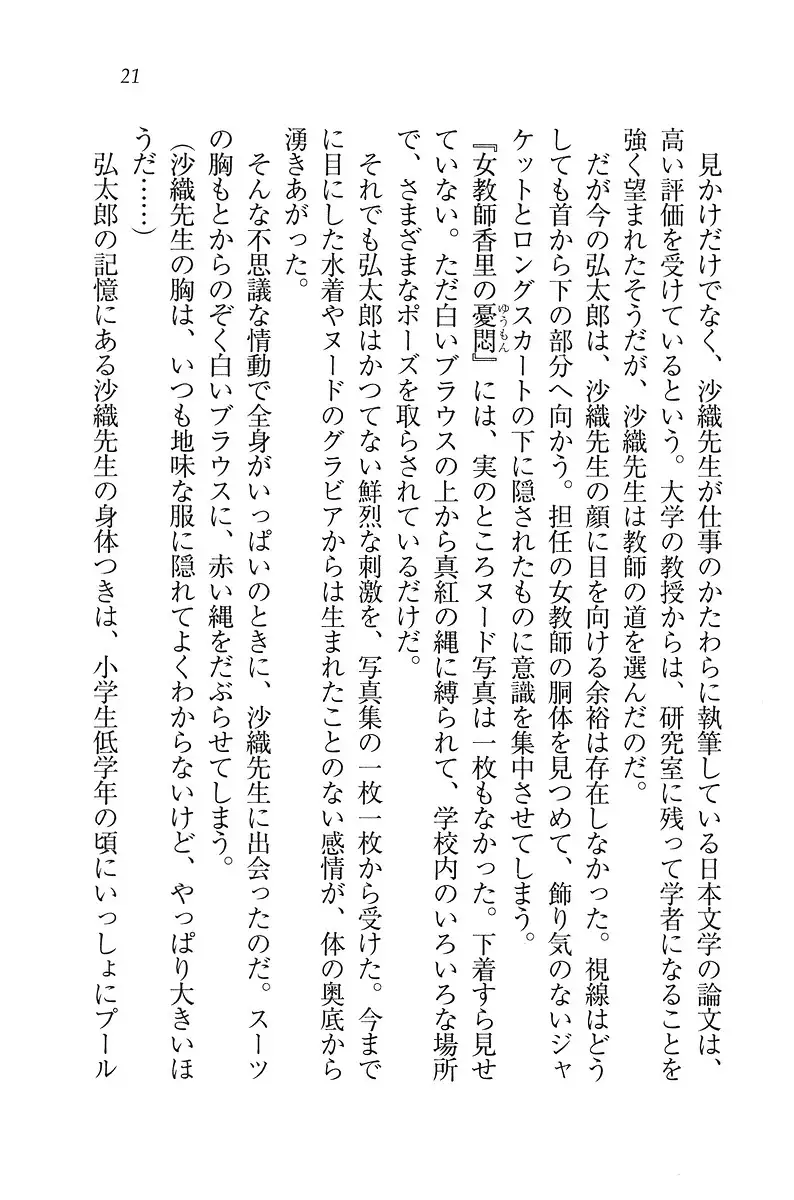 21
見かけだけでなく、沙織先生が仕事のかたわらに執筆している日本文学の論文は、
高い評価を受けているという。大学の教授からは、研究室に残って学者になることを
強く望まれたそうだが、沙織先生は教師の道を選んだのだ。
だが今の弘太郎は、沙織先生の顔に目を向ける余裕は存在しなかった。視線はどう
しても首から下の部分へ向かう。担任の女教師の胴体を見つめて、飾り気のないジャ
ケットとロングスカートの下に隠されたものに意識を集中させてしまう。
『女教師香里の憂悶』には、実のところヌード写真は一枚もなかった。下着すら見せ
ゆうもん
ていない。ただ白いブラウスの上から真紅の縄に縛られて、学校内のいろいろな場所
で、さまざまなポーズを取らされているだけだ。
それでも弘太郎はかつてない鮮烈な刺激を、写真集の一枚一枚から受けた。今まで
に目にした水着やヌードのグラビアからは生まれたことのない感情が、体の奥底から
湧きあがった。
そんな不思議な情動で全身がいっぱいのときに、沙織先生に出会ったのだ。スーツ
の胸もとからのぞく白いブラウスに、赤い縄をだぶらせてしまう。
（沙織先生の胸は、いつも地味な服に隠れてよくわからないけど、やっぱり大きいほ
うだ……）
弘太郎の記憶にある沙織先生の身体つきは、小学生低学年の頃にいっしょにプール